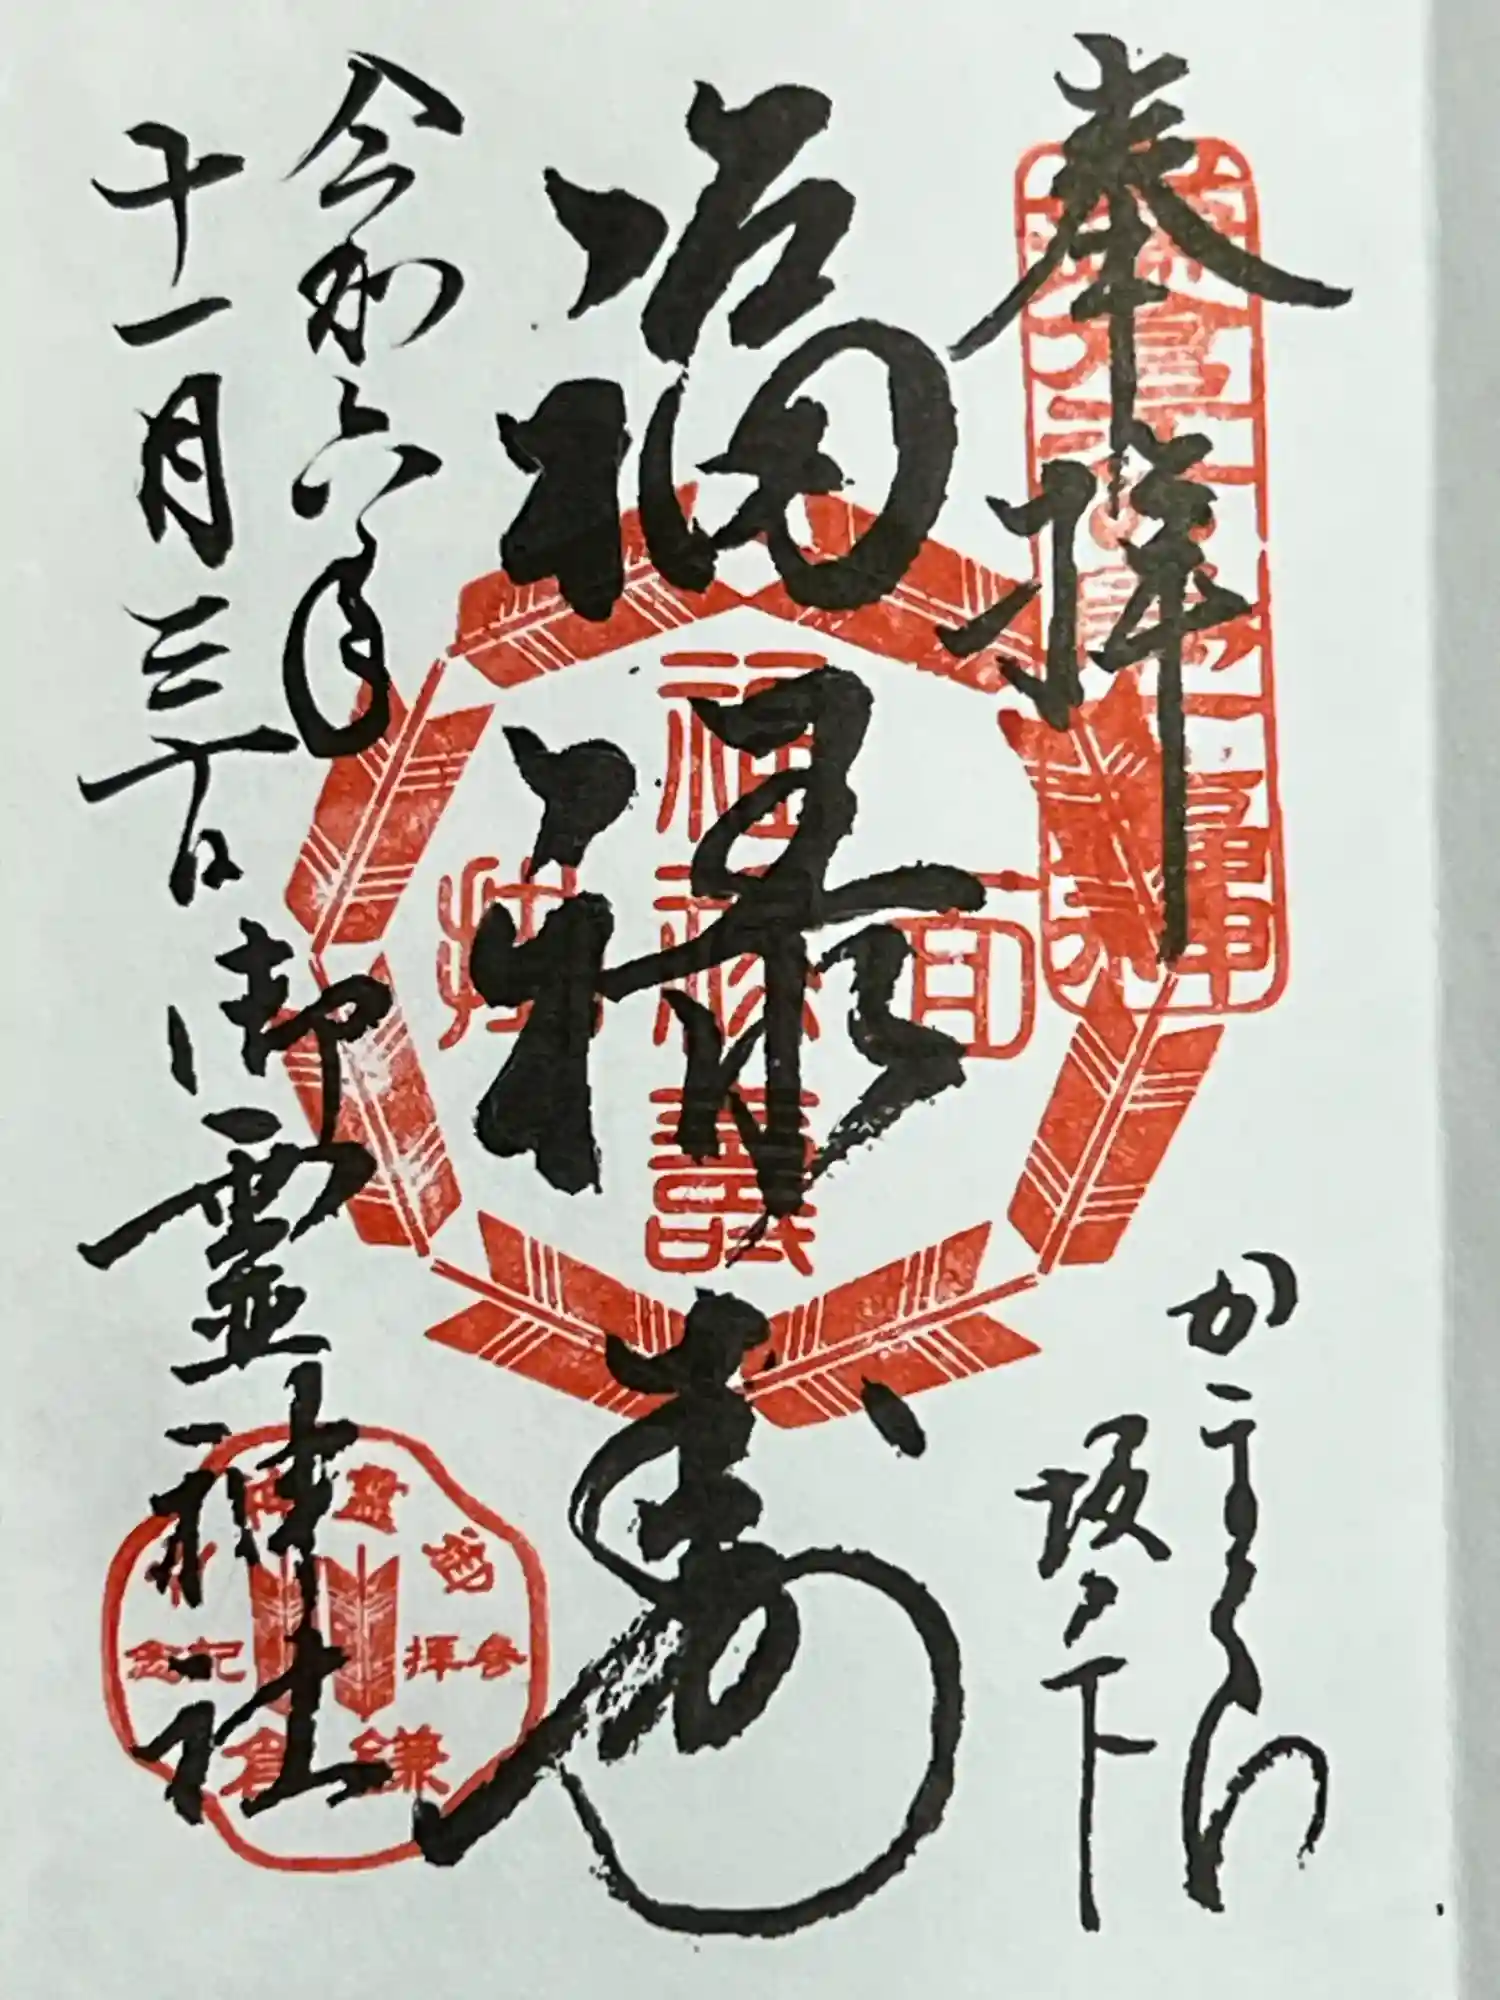 奉拝
かまくら
坂ノ下
福禄寿
福禄壽
令和六年
十一月三十日
御霊神社
御霊神社
参拝記念
鎌倉